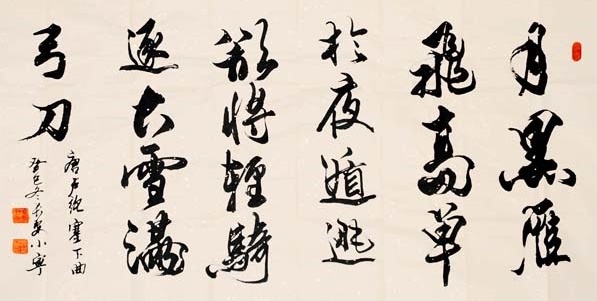 月黑雁
飛高單
於夜遁逃
欲將輕騎
逐大雪滿
弓刀
唐卢纶塞下曲
癸巳冬小寧